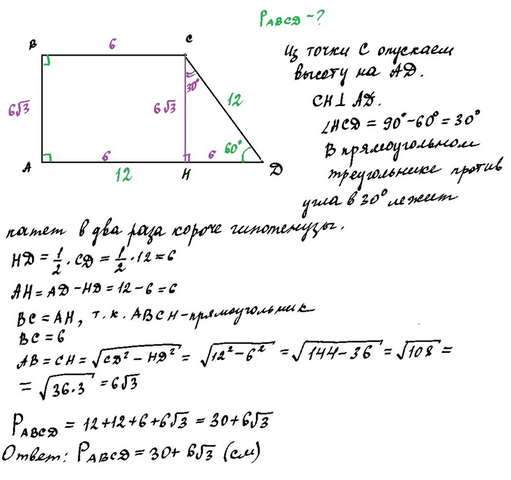 P_ABCD - ?
B 6 C
6√3 6√3 30° 12
A 6 H 6 60° D
12
Из точки C опускаем
высоту на AD.
CH⊥AD.
∠HCD = 90°-60° = 30°
В прямоугольном
треугольнике против
угла в 30° лежит
катет в два раза короче гипотенузы.
HD = 1/2 · CD = 1/2 · 12 = 6
AH = AD - HD = 12 - 6 = 6
BC = AH, т.к. ABCH - прямоугольник
BC = 6
AB = CH = √(CD² - HD²) = √(12² - 6²) = √(144 - 36) = √108 =
= √(36·3) = 6√3
P_ABCD = 12+12+6+6√3 = 30+6√3
Ответ: P_ABCD = 30+6√3 (см)